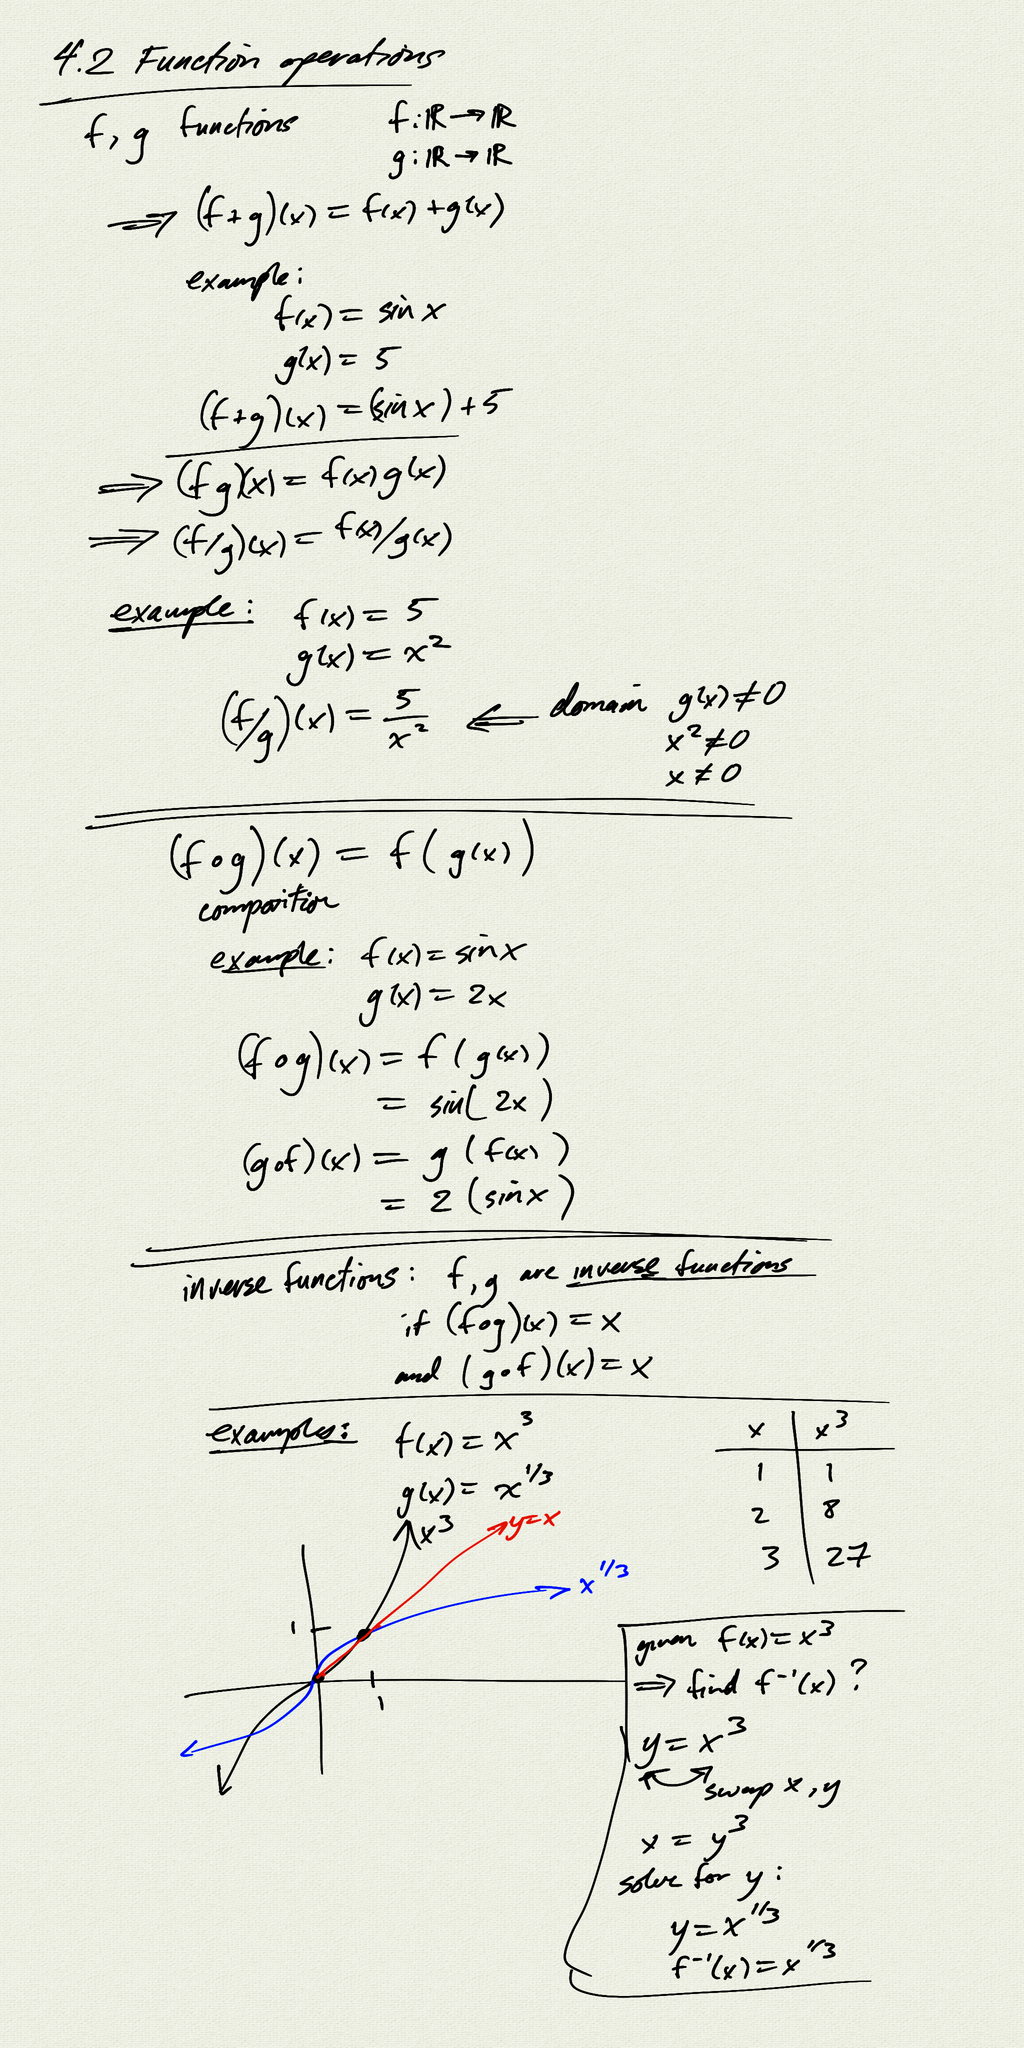 4.2 Function operations
f, g functions f:ℝ→ℝ
g:ℝ→ℝ
⟹ (f+g)(x) = f(x)+g(x)
example:
f(x) = sin x
g(x) = 5
(f+g)(x) = (sin x)+5
⟹ (fg)(x) = f(x)g(x)
⟹ (f/g)(x) = f(x)/g(x)
example: f(x) = 5
g(x) = x²
(f/g)(x) = 5/x² ⟸ domain g(x)≠0
x²≠0
x≠0
(f∘g)(x) = f(g(x))
composition
example: f(x) = sin x
g(x) = 2x
(f∘g)(x) = f(g(x))
= sin(2x)
(g∘f)(x) = g(f(x))
= 2(sin x)
inverse functions: f,g are inverse functions
if (f∘g)(x) = x
and (g∘f)(x) = x
examples: f(x) = x³
g(x) = x^1/3
x x³
1 1
2 8
3 27
x³
y=x
x^1/3
1
1
given f(x)=x³
⟹ find f⁻¹(x)?
y = x³
swap x,y
x = y³
solve for y:
y = x^1/3
f⁻¹(x) = x^1/3